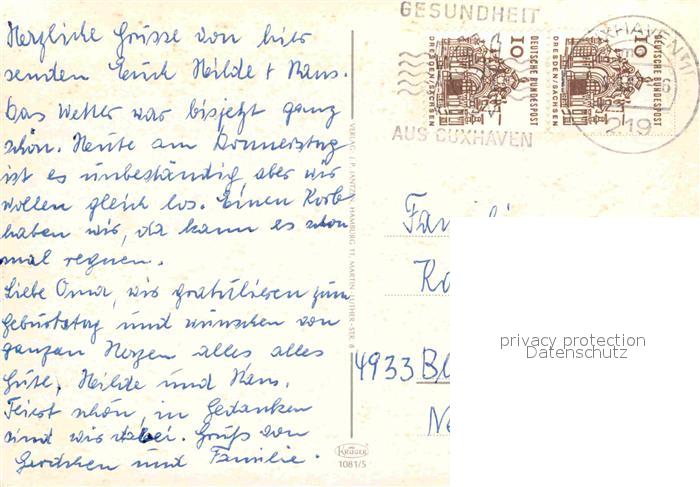 Herzliche Grüsse von hier
senden Euch Hilde + Hans.
Das Wetter war bisjetzt ganz
schön. Heute am Donnerstag
ist es unbeständig aber wir
wollen gleich los. Einen Korb
haben wir, da kann es schon
mal regnen.
Liebe Oma, wir gratulieren zum
Geburtstag und wünschen von
ganzen Herzen alles alles
Gute, Hilde und Hans.
Feiert schön, in Gedanken
sind wir dabei. Gruß von
Gerdchen und Familie.
VERLAG J. P. JANTZEN, HAMBURG 11, MARTIN-LUTHER-STR. 8
KRÜGER
1081/5
GESUNDHEIT
AUS CUXHAVEN
10 DEUTSCHE BUNDESPOST
DRESDEN/SACHSEN
10 DEUTSCHE BUNDESPOST
DRESDEN/SACHSEN
CUXHAVEN
19
Fa
Ko
4933 Bl
Ne
privacy protection
Datenschutz